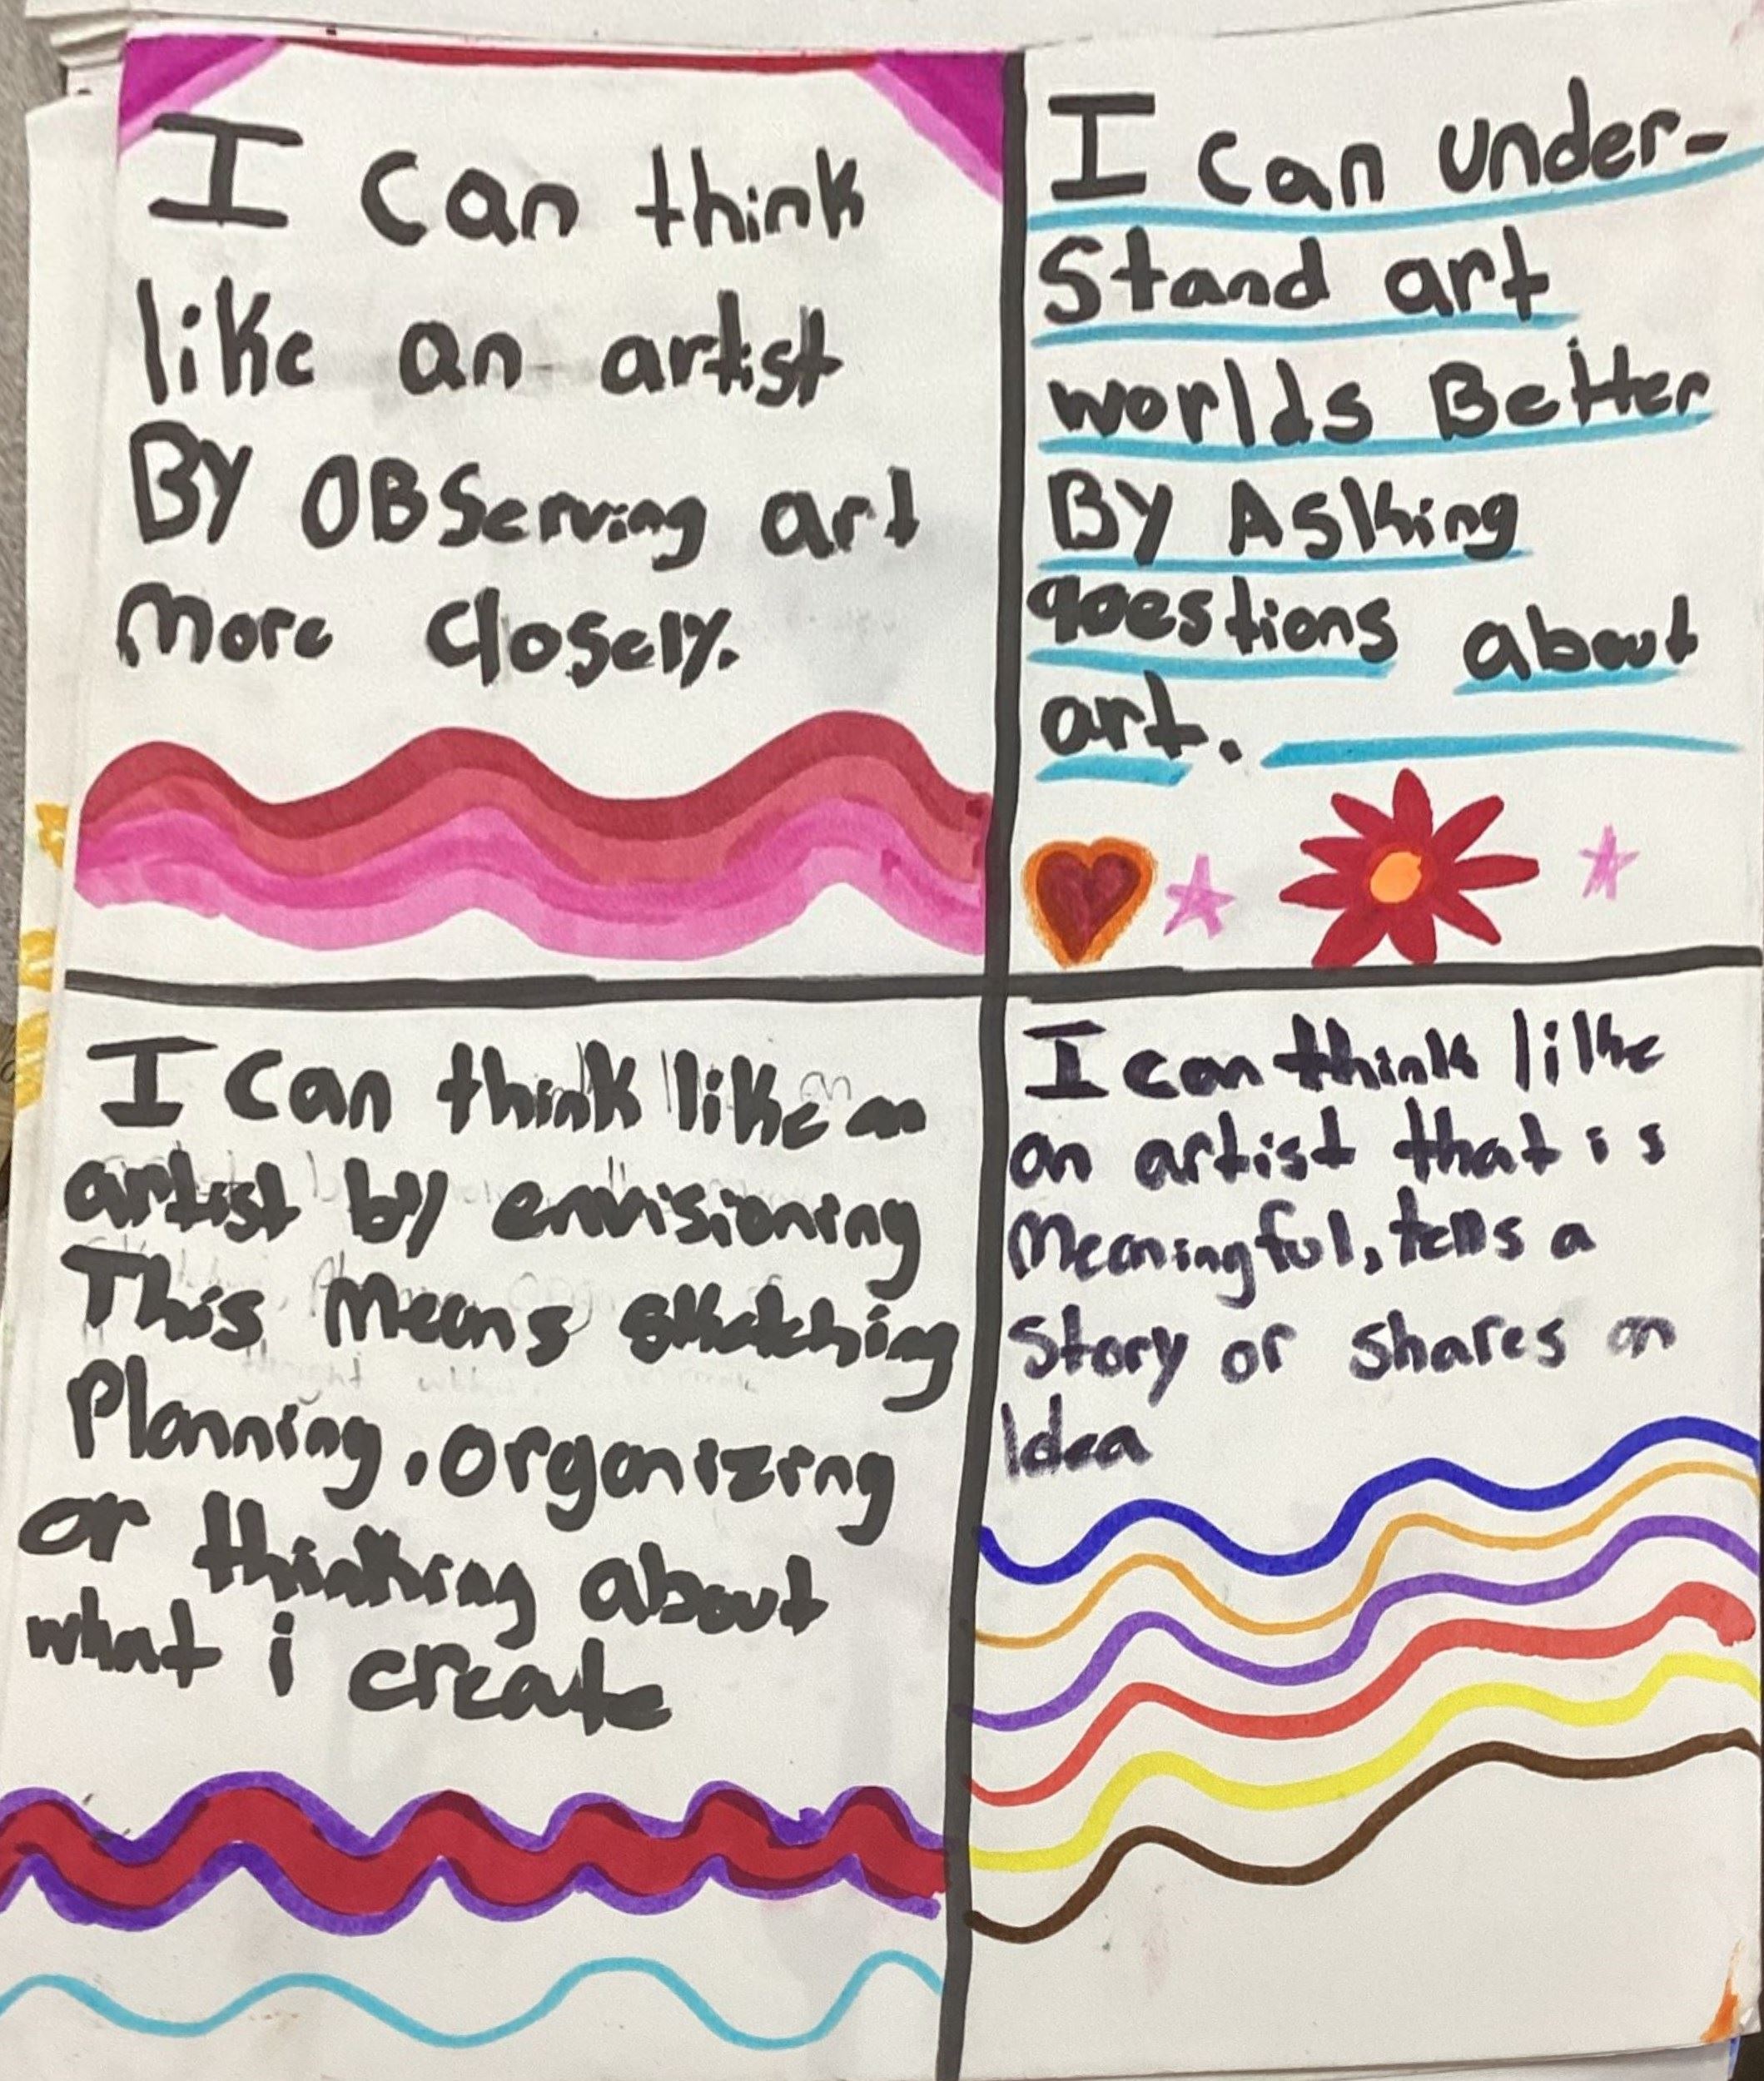 I can think
like an artist
BY OBServing art
more closely.
I can under-
Stand art
worlds Better
By Asking
questions about
art.
I can think like an
artist by envisioning
This means sketching
Planning, organizing
or thinking about
what i create
I can think like
an artist that is
meaningful, tells a
Story or shares an
Idea